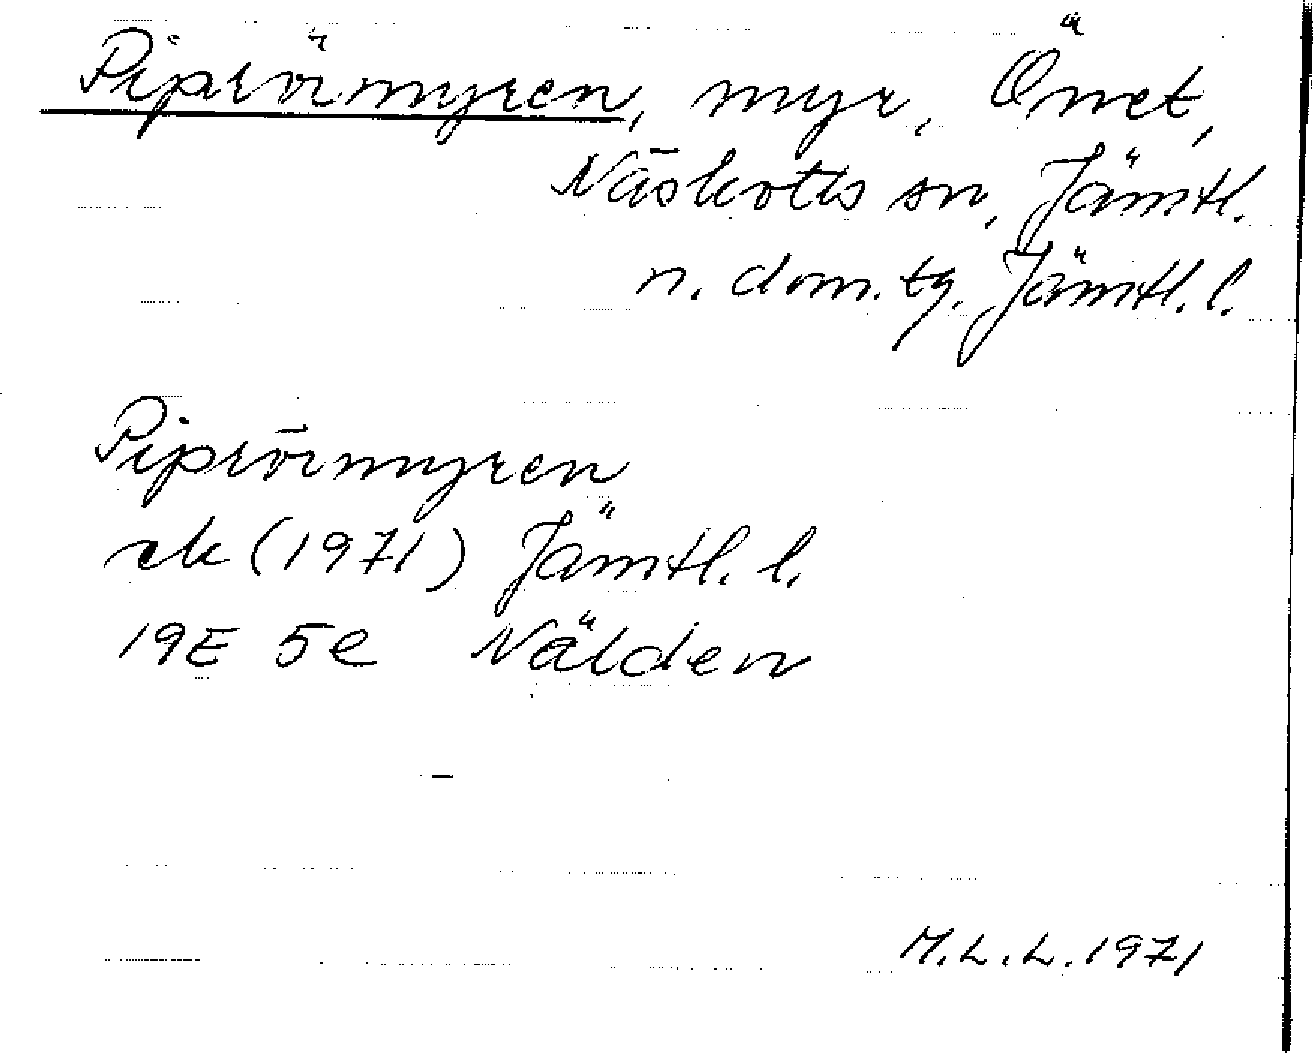 Piprörmyren, myr, Önet,
Näskotts sn, Jämtl.
n. dom. tg. Jämtl. l.
Piprörmyren
ek (1971) Jämtl. l.
19E 5e Nälden
M.L.L. 1971